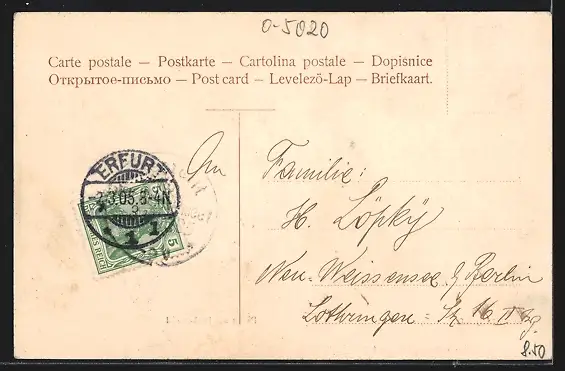 0-5020
Carte postale – Postkarte – Cartolina postale – Dopisnice
Открытое-письмо – Post card – Levelezö-Lap – Briefkaart.
An
Familie:
H. Löpky
Neu-Weissensee b/ Berlin
Lothringen-
16 II
ERFURT
3.05. 3-4N
1 1 1
REICH
5
8.50